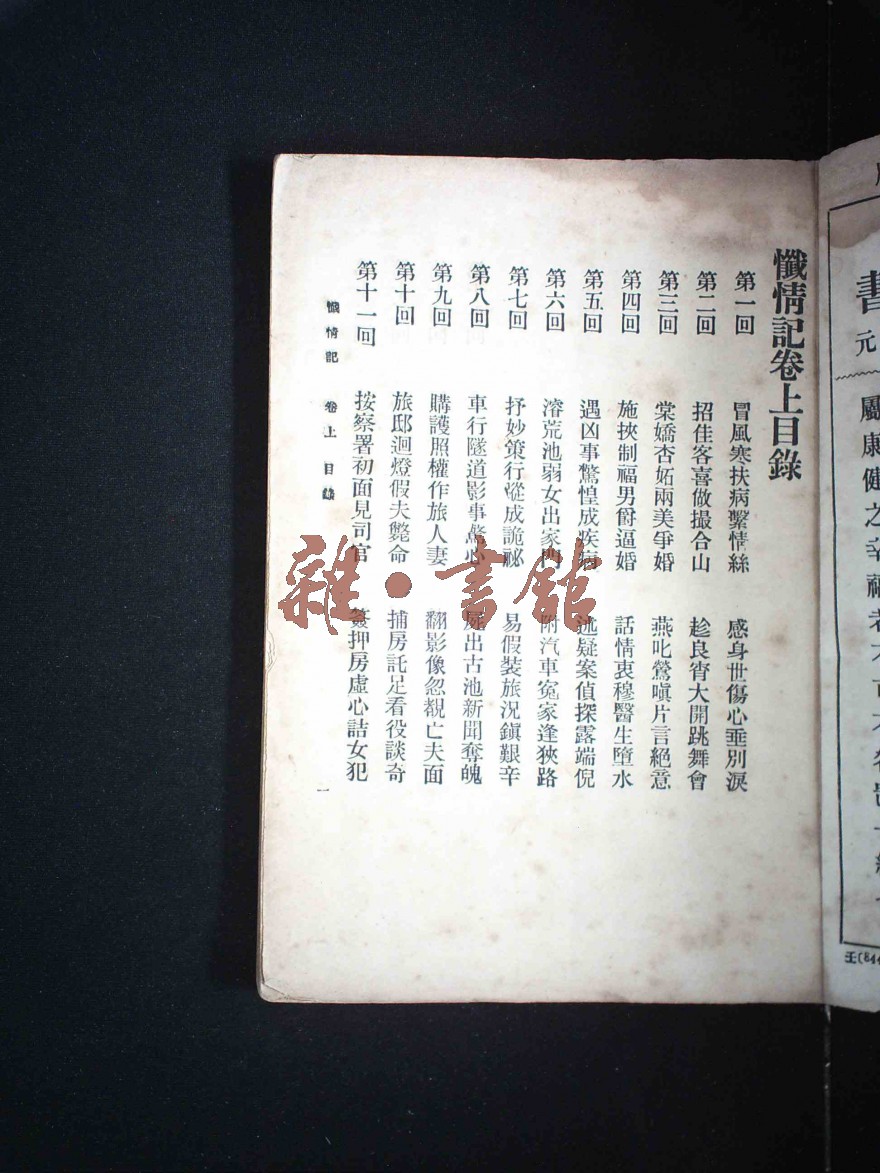 懺情記卷上目錄
第一回　冒風寒扶病繫情絲　感身世傷心垂別淚
第二回　招佳客喜做撮合山　趁良宵大開跳舞會
第三回　棠嬌杏妬兩美爭婚　燕叱鶯嗔片言絕意
第四回　施挾制福男爵逼婚　話情衷穆醫生墮水
第五回　遇凶事驚惶成疾病　述疑案偵探露端倪
第六回　溶荒池弱女出家門　附汽車冤家逢狹路
第七回　抒妙策行蹤成詭祕　易假裝旅況鎮艱辛
第八回　車行隧道影事驚心　屍出古池新聞奪魄
第九回　購護照權作旅人妻　翻影像忽覩亡夫面
第十回　旅邸迴燈假夫斃命　捕房託足看役談奇
第十一回　按察署初面見司官　簽押房虛心詰女犯
懺情記　卷上　目錄　一
雜·書館
書
元